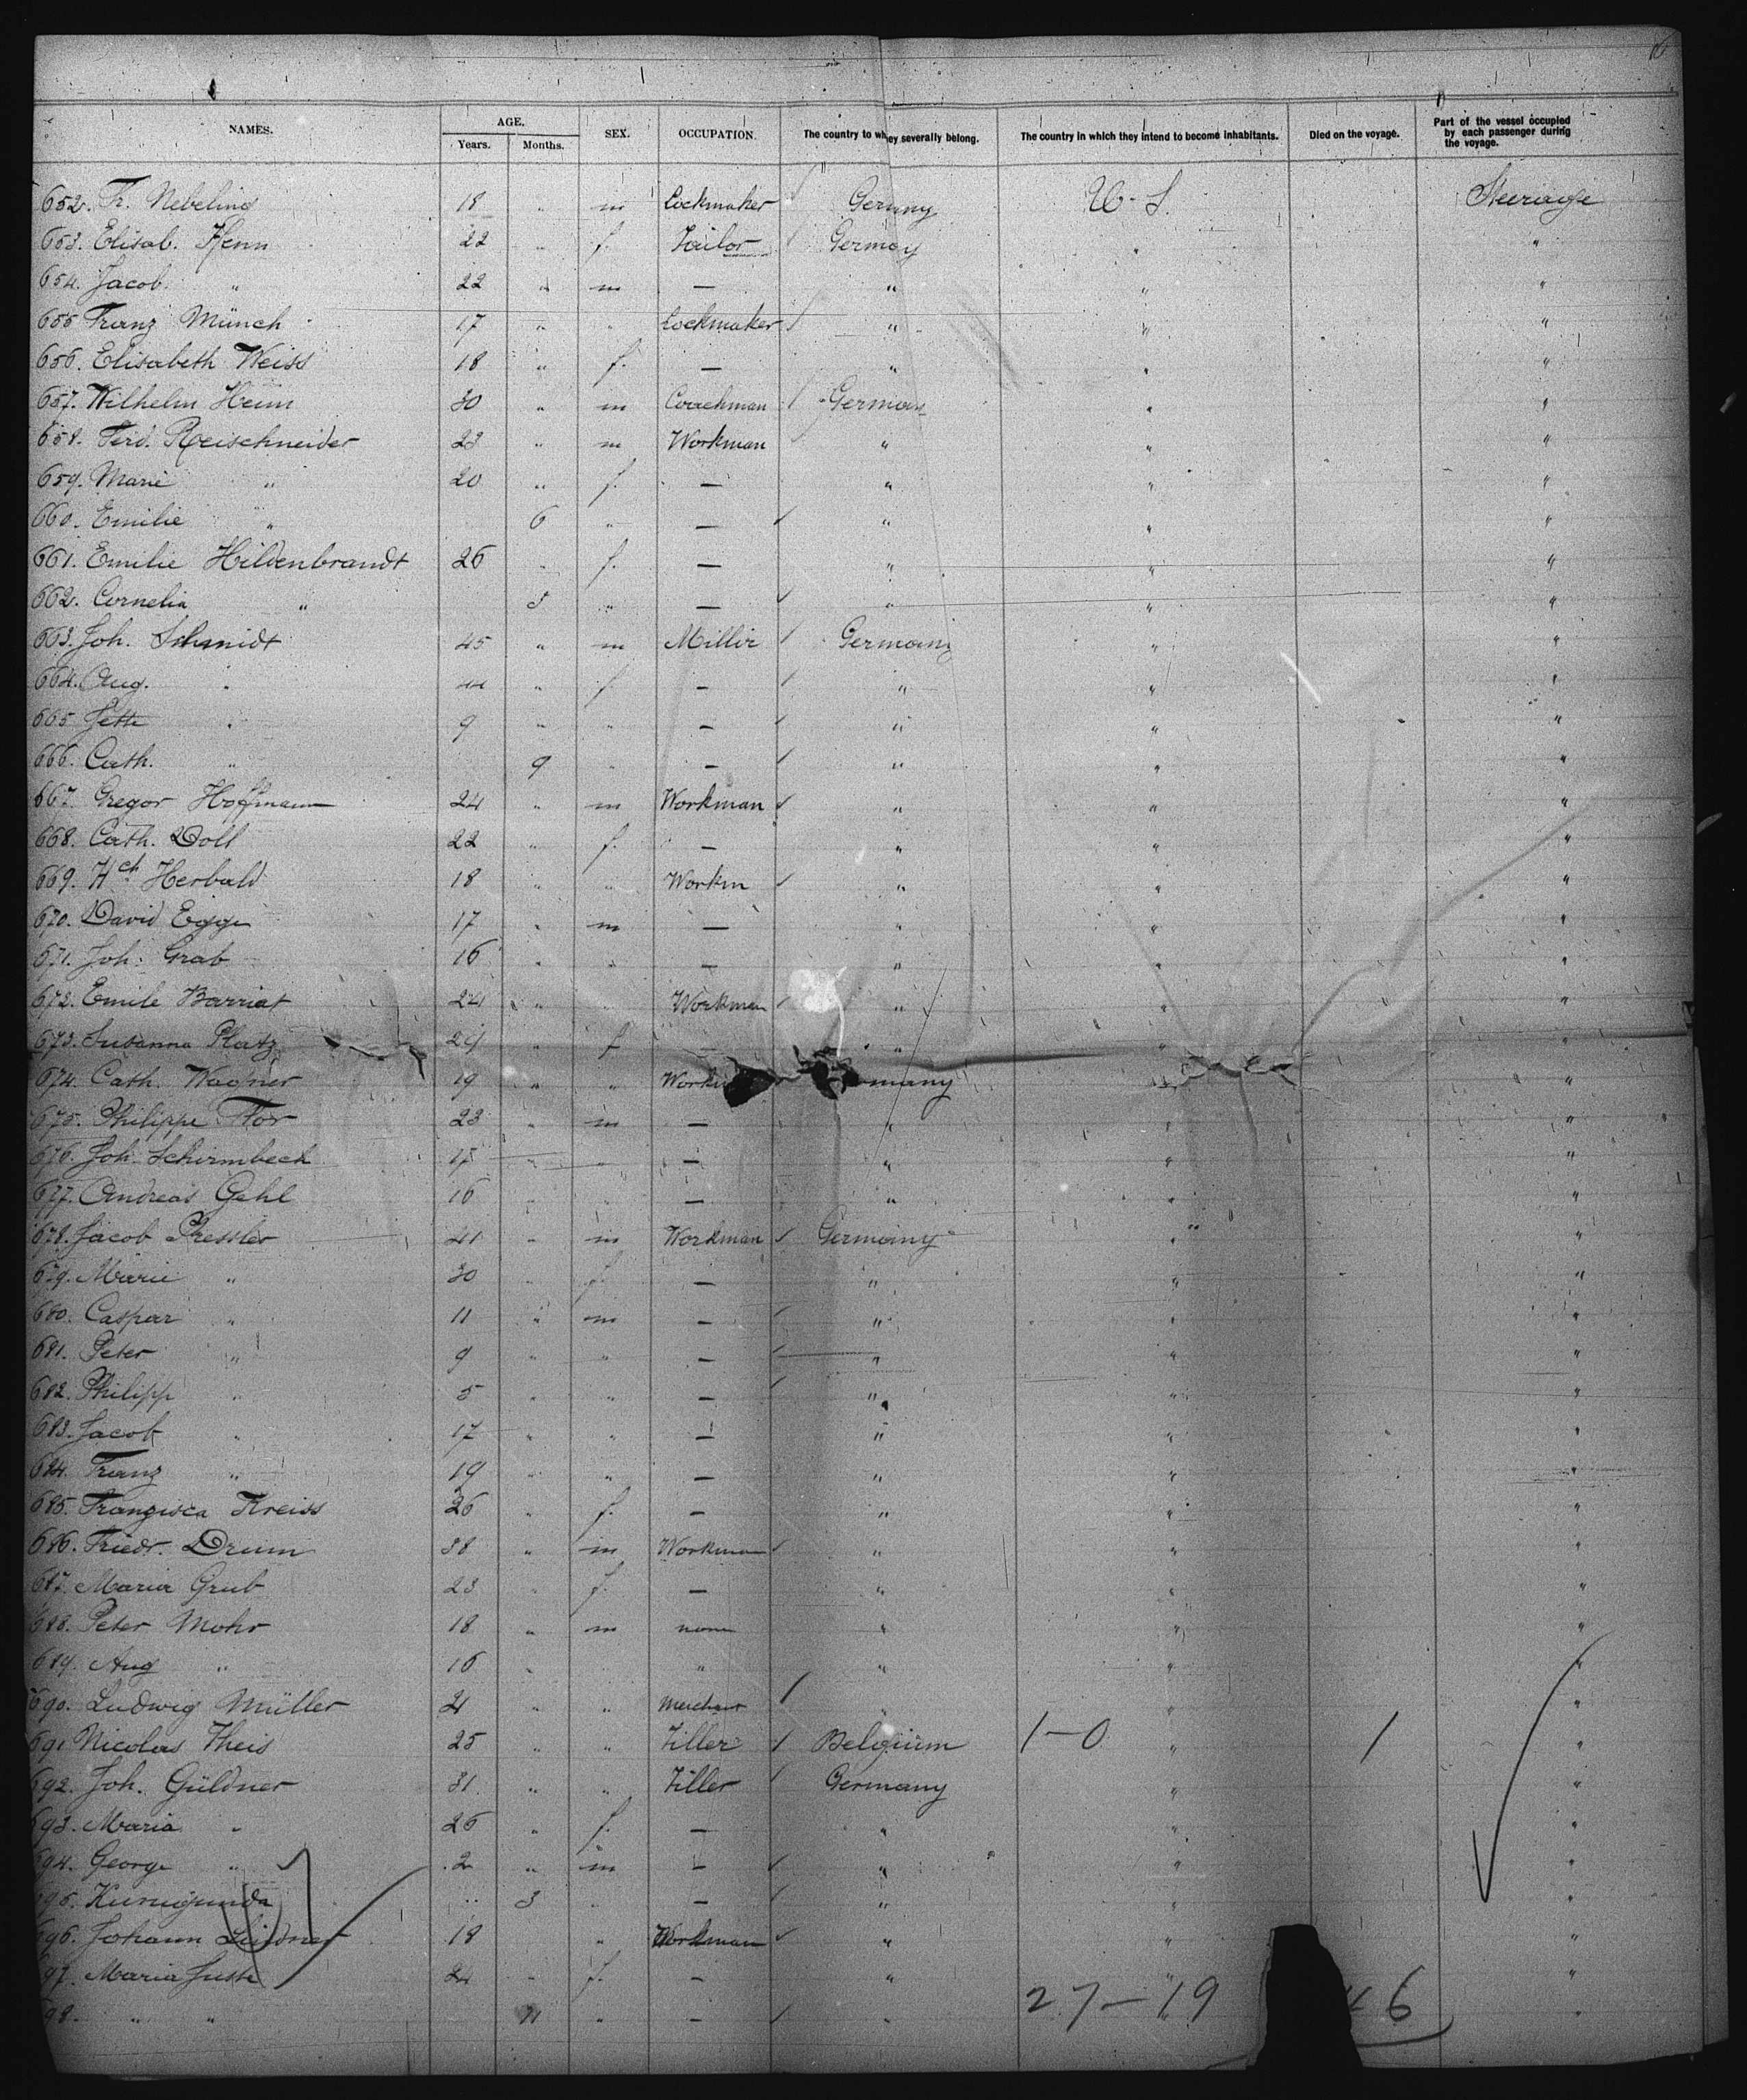 NAMES. AGE. SEX. OCCUPATION. The country to wh ey severally belong. The country in which they intend to become inhabitants. Died on the voyage. Part of the vessel occupied by each passenger during the voyage.
Years. Months.
652. Fr. Nebeling 18 " m Lockmaker Germany U-S. Steerage
653. Elisab. Henn 22 " f. Tailor Germany " "
654. Jacob " 22 " m — " " "
655 Franz Münch 17 " " Lockmaker " " "
656. Elisabeth Weiss 18 " f. — " " "
657. Wilhelm Heim 30 " m Coachman Germany " "
658. Ferd. Reischneider 23 " m Workman " " "
659. Marie " 20 " f. — " " "
660. Emilie " 6 " — " " "
661. Emilie Hildenbrandt 26 " f. — " " "
662. Cornelia " 5 " — " " "
663. Joh. Schmidt 45 " m Miller Germany " "
664. Aug. " 44 " f — " " "
665 Jette " 9 " " — " " "
666. Cath. " 9 " — " " "
667. Gregor Hoffmann 24 " m Workman " " "
668. Cath. Doll 22 " f. — " " "
669. Hch Herbald 18 " " Workm " " "
670. David Egge 17 " m — " " "
671. Joh. Grab 16 " " — " " "
672. Emile Barriat 24 " " Workman " " "
673. Susanna Platz 24 " f — " " "
674. Cath. Wagner 19 " " Workm many " "
675. Philippe Flor 23 " m — " " "
676. Joh. Schirmbeck 17 " " — " " "
677. Andreas Gehl 16 " " — " " "
678. Jacob Pressler 41 " m Workman Germany " "
679. Marie " 30 " f. — " " "
680. Caspar " 11 " m — " " "
681. Peter " 9 " " — " " "
682. Philipp " 5 " " — " " "
683. Jacob " 17 " " — " " "
684. Franz " 19 " " — " " "
685. Franzisca Kreiss 26 " f. — " " "
686. Friedr. Drum 38 " m Workman " " "
687. Maria Grub 23 " f. — " " "
688. Peter Mohr 18 " m none " " "
689. Aug " 16 " " " " " "
690. Ludwig Müller 21 " " Merchant " " "
691 Nicolas Theis 25 " " Tiller Belgium 1-0 " 1 "
692. Joh. Güldner 31 " " Tiller Germany " "
693. Maria " 26 " f. — " " "
694. George " 2 " m — " " "
695. Kunigunda 3 " — " " "
696. Johann Lindner 18 " Workman " " "
97. Maria Juste 24 " f. — " " "
98. " " 11 " — " "
27-19 46